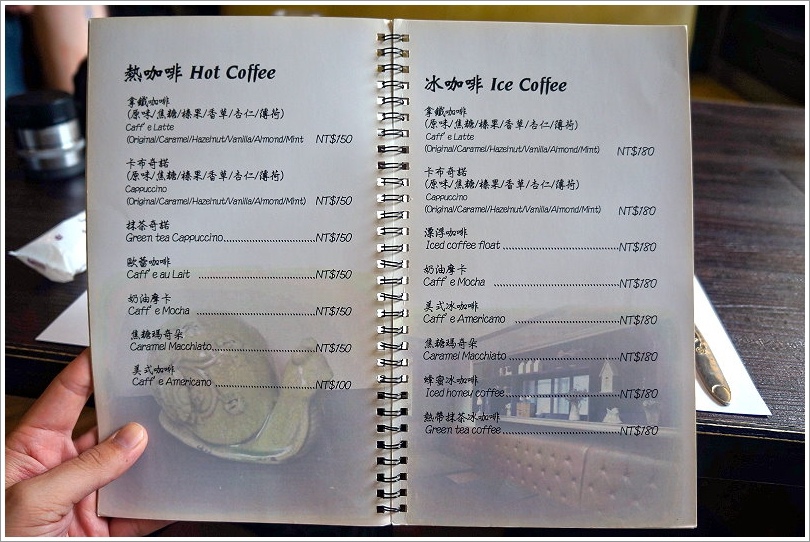 熱咖啡 Hot Coffee
拿鐵咖啡
(原味/焦糖/榛果/香草/杏仁/薄荷)
Caff'e Latte
(Original/Caramel/Hazelnut/Vanilla/Almond/Mint NT$150
卡布奇諾
(原味/焦糖/榛果/香草/杏仁/薄荷)
Cappuccino
(Original/Caramel/Hazelnut/Vanilla/Almond/Mint) NT$150
抹茶奇諾
Green tea Cappuccino NT$150
歐蕾咖啡
Caff'e au Lait NT$150
奶油摩卡
Caff'e Mocha NT$150
焦糖瑪奇朵
Caramel Macchiato NT$150
美式咖啡
Caff'e Americano NT$100
冰咖啡 Ice Coffee
拿鐵咖啡
(原味/焦糖/榛果/香草/杏仁/薄荷)
Caff'e Latte
(Original/Caramel/Hazelnut/Vanilla/Almond/Mint) NT$180
卡布奇諾
(原味/焦糖/榛果/香草/杏仁/薄荷)
Cappuccino
(Original/Caramel/Hazelnut/Vanilla/Almond/Mint) NT$180
漂浮咖啡
Iced coffee float NT$180
奶油摩卡
Caff'e Mocha NT$180
美式冰咖啡
Caff'e Americano NT$180
焦糖瑪奇朵
Caramel Macchiato NT$180
蜂蜜冰咖啡
Iced honey coffee NT$180
熱帶抹茶冰咖啡
Green tea coffee NT$180